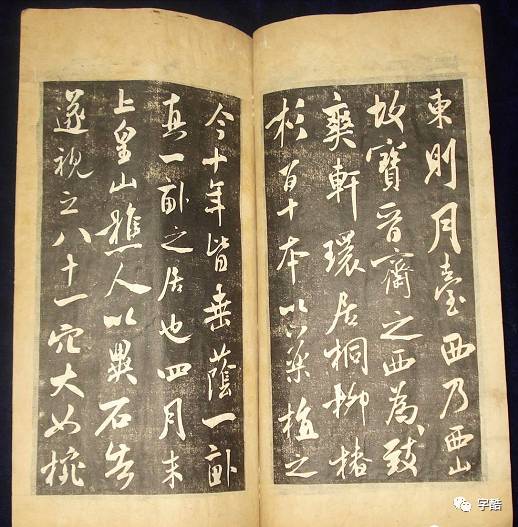 東則月臺西乃西山
故寶晉齋之西為致
爽軒環居桐柳椿
杉百十本以藥植之
今十年皆垂蔭一畝
真一畝之居也四月末
上皇山樵人以異石告
遂視之八十一穴大如椀
字酷